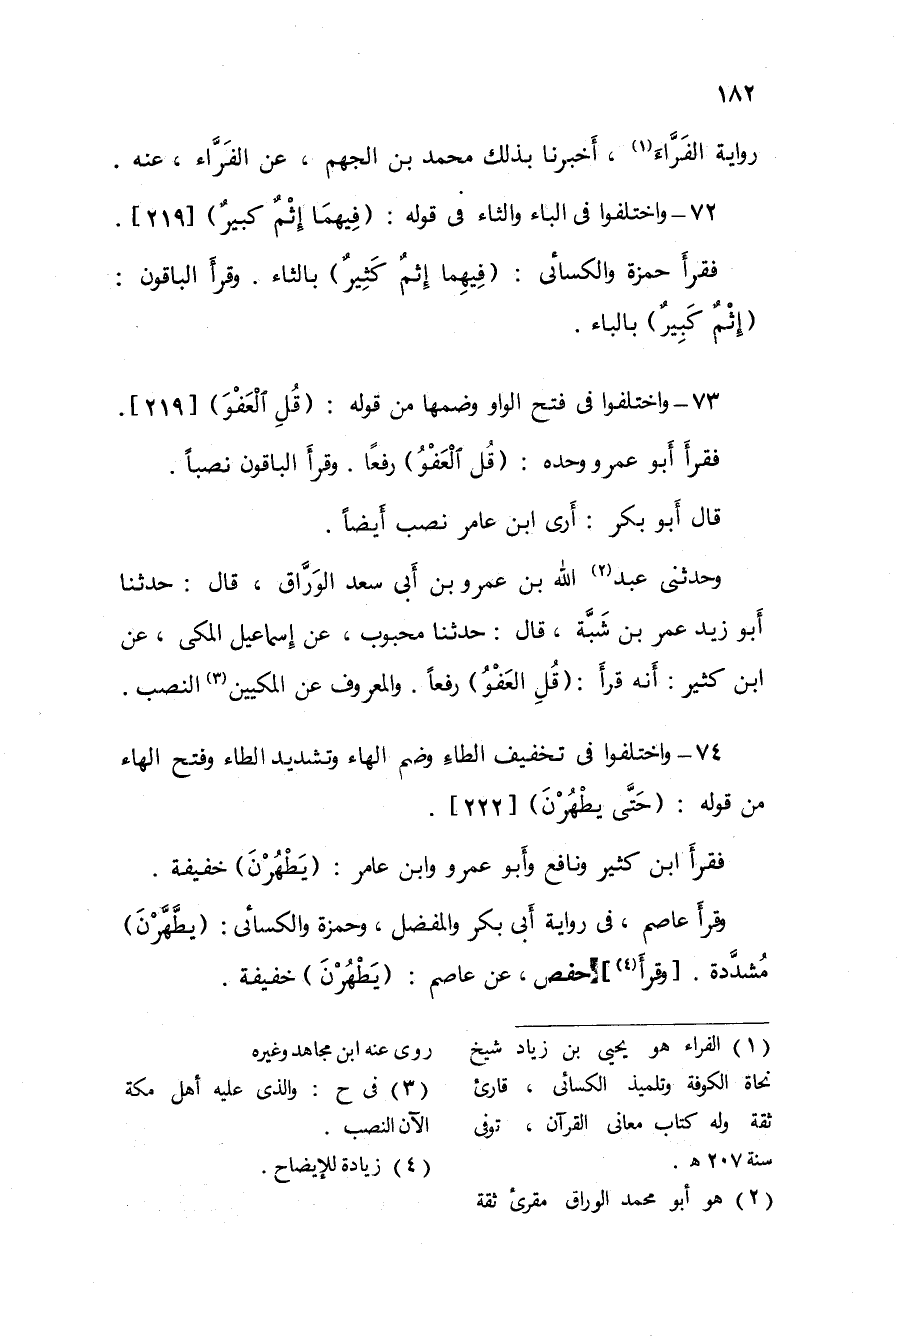 ١٨٢
رواية الفَرَّاء(١) ، أَخبرنا بذلك محمد بن الجهم ، عن الفَرَّاء ، عنه .
٧٢ – واختلفوا فى الباء والثاء فى قوله : (فِيهِمَا إِثْمٌ كَبيرٌ) [٢١٩] .
فقرأَ حمزة والكسائى : (فِيهِما إِثمٌ كَثِيرٌ) بالثاء . وقرأَ الباقون :
(إِثْمٌ كَبِيرٌ) بالباء .
٧٣ – واختلفوا فى فتح الواو وضمها من قوله : (قُلِ ٱلْعَفْوَ) [٢١٩] .
فقرأَ أَبو عمرو وحده : (قُل ٱلْعَفْوُ) رفعًا . وقرأَ الباقون نصباً .
قال أَبو بكر : أَرى ابن عامر نصب أَيضاً .
وحدثنى عبد(٢) الله بن عمرو بن أَبى سعد الوَرَّاق ، قال : حدثنا
أَبو زيد عمر بن شَبَّة ، قال : حدثنا محبوب ، عن إِسماعيل المكى ، عن
ابن كثير : أَنه قرأَ : (قُلِ العَفْوُ) رفعاً . والمعروف عن المكيين(٣) النصب .
٧٤ – واختلفوا فى تخفيف الطاءِ وضم الهاء وتشديد الطاء وفتح الهاء
من قوله : (حَتَّى يطْهُرْنَ) [٢٢٢] .
فقرأَ ابن كثير ونافع وأَبو عمرو وابن عامر : (يَطْهُرْنَ) خفيفة .
وقرأَ عاصم ، فى رواية أَبى بكر والمفضل ، وحمزة والكسائى : (يطَّهَّرْنَ)
مُشدَّدة . [وقرأَ(٤)] حفص ، عن عاصم : (يَطْهُرْنَ) خفيفة .
(١) الفراء هو يحيى بن زياد شيخ
نحاة الكوفة وتلميذ الكسائى ، قارئ
ثقة وله كتاب معانى القرآن ، توفى
سنة ٢٠٧ هـ .
(٢) هو أبو محمد الوراق مقرئ ثقة
روى عنه ابن مجاهد وغيره
(٣) فى ح : والذى عليه أهل مكة
الآن النصب .
(٤) زيادة للإيضاح .